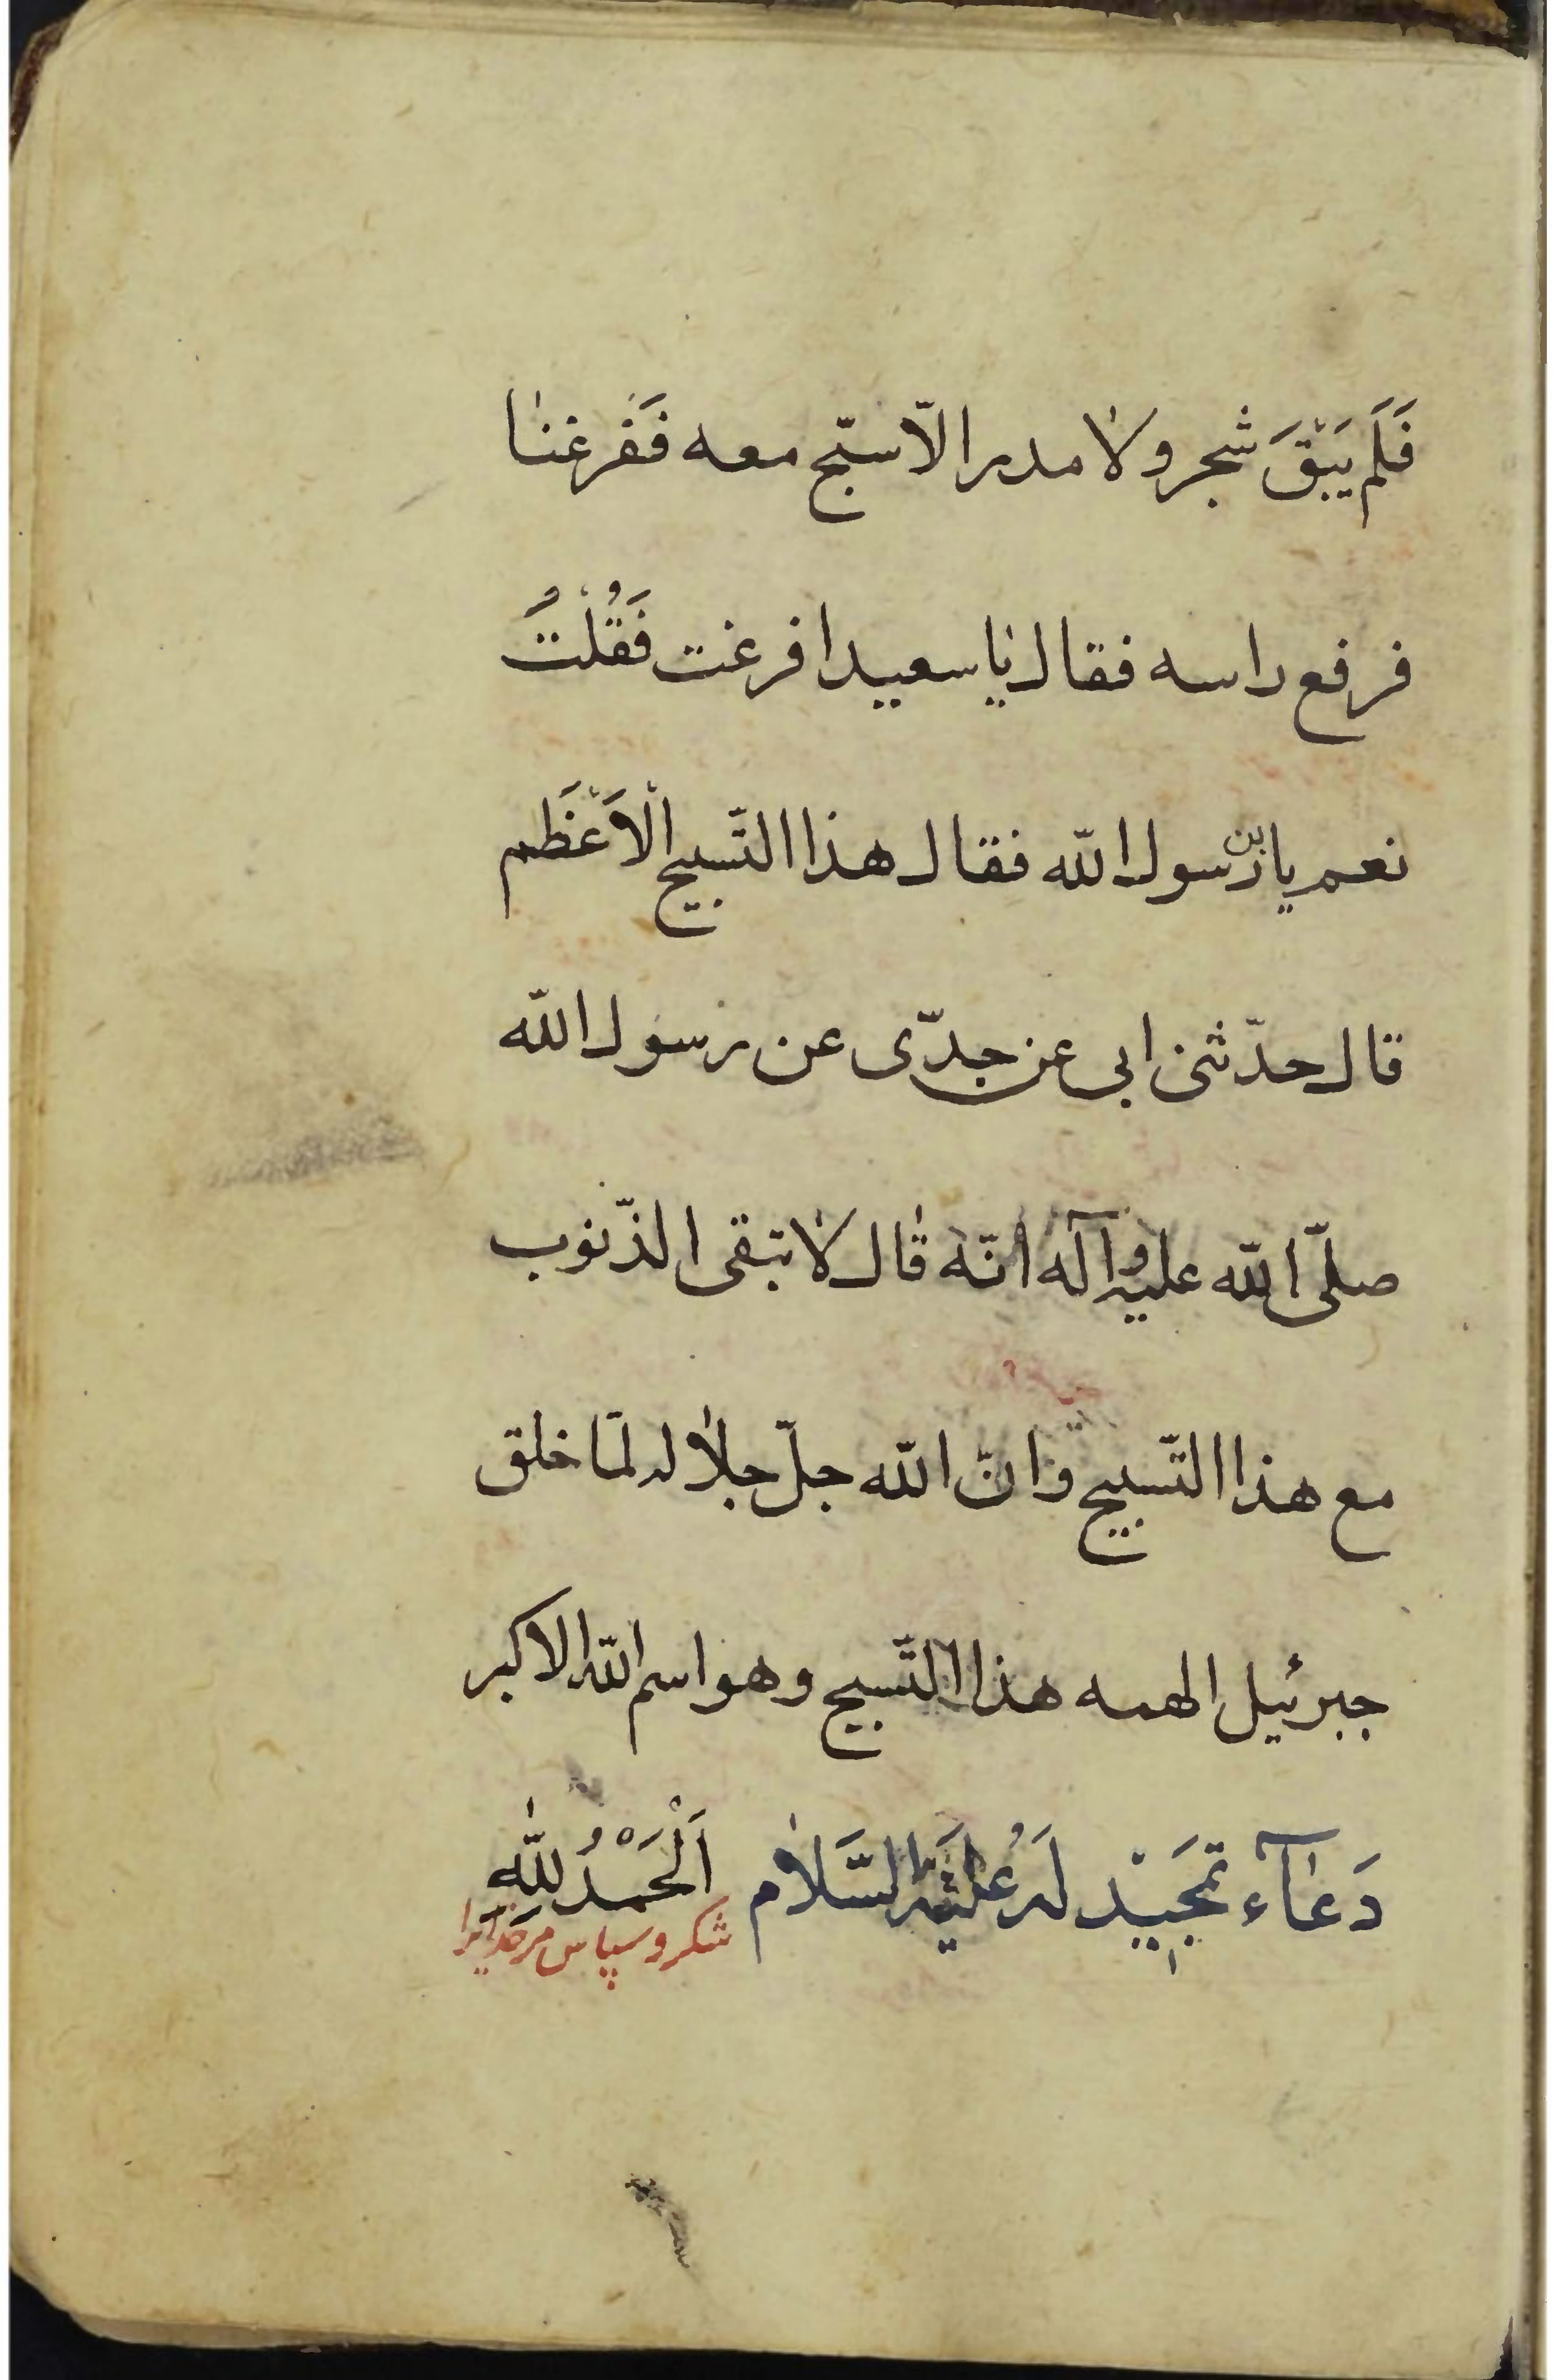 فَلَم يَبْقَ شجر ولا مدر الّا سبّح معه فَفَرغنا
فرفع راسه فقال يا سعيد افرغت فَقُلْتُ
نعم يابن رّسول الله فقال هذا التّسبيح الْاَعْظَم
قال حدّثنى ابى عن جدّى عن رسول الله
صلّى الله عليه وآله انّه قال لا تبقى الذّنوب
مع هذا التّسبيح وانّ الله جلّ جلاله لمّا خلق
جبرئيل الهمه هذا التّسبيح وهو اسم الله الاكبر
دَعٰآء تَمجَيْد لَهُ عَلَيْهِ السَّلام اَلْحَمْدُ لِلّٰهِ
شكر و سپاس مر خدايرا